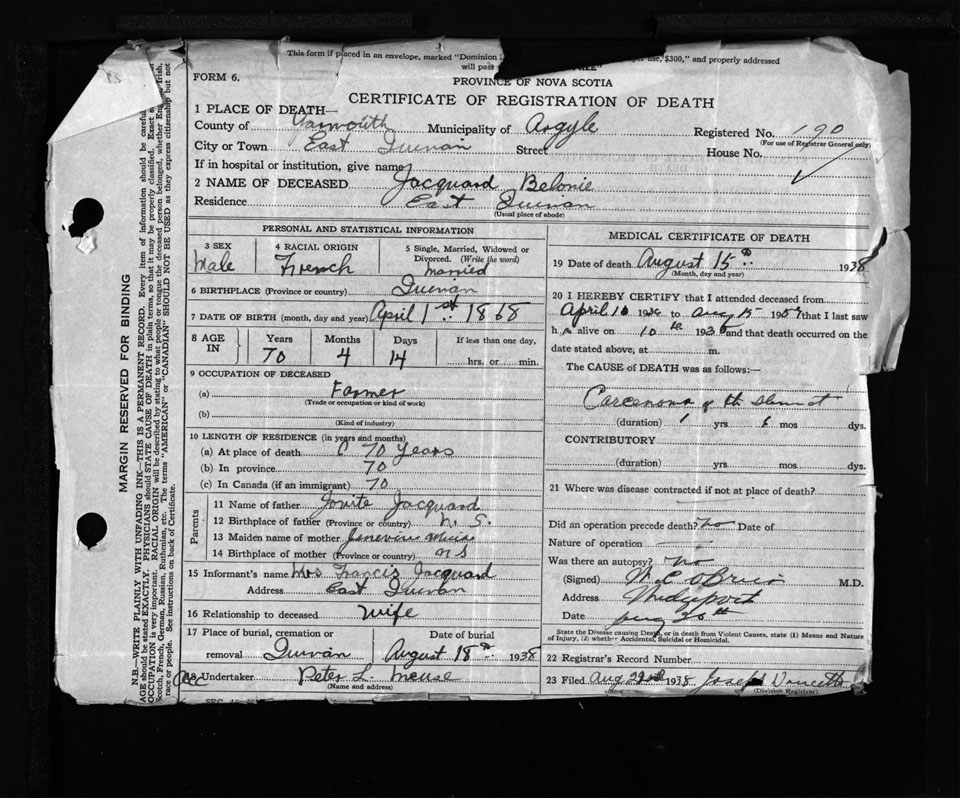 This form if placed in an envelope, marked "Dominion
use, $300," and properly addressed
will pass
FREE"
PROVINCE OF NOVA SCOTIA
FORM 6.
CERTIFICATE OF REGISTRATION OF DEATH
1 PLACE OF DEATH—
County of Yarmouth Municipality of Argyle Registered No. 190
(For use of Registrar General only)
City or Town East Quinan Street House No.
If in hospital or institution, give name
2 NAME OF DECEASED Jacquard Belonie
Residence East Quinan
(Usual place of abode)
PERSONAL AND STATISTICAL INFORMATION
3 SEX
Male
4 RACIAL ORIGIN
French
5 Single, Married, Widowed or
Divorced. (Write the word)
Married
6 BIRTHPLACE (Province or country) Quinan
7 DATE OF BIRTH (month, day and year) April 1st 1868
8 AGE IN
Years Months Days If less than one day,
70 4 14 hrs. or min.
9 OCCUPATION OF DECEASED
(a) Farmer
(Trade or occupation or kind of work)
(b)
(Kind of industry)
10 LENGTH OF RESIDENCE (in years and months)
(a) At place of death 70 Years
(b) In province 70
(c) In Canada (if an immigrant) 70
Parents
11 Name of father Jovite Jacquard
12 Birthplace of father (Province or country) N. S.
13 Maiden name of mother Muise
14 Birthplace of mother (Province or country) N S
15 Informant's name Mrs Francis Jacquard
Address East Quinan
16 Relationship to deceased Wife
17 Place of burial, cremation or Date of burial
removal Quinan August 18th 1938
18 Undertaker Peter L. Meuse
(Name and address)
MEDICAL CERTIFICATE OF DEATH
19 Date of death August 15th 1938
(Month, day and year)
20 I HEREBY CERTIFY that I attended deceased from
April 10 193 to Aug 15 19 that I last saw
h alive on 10th 193 and that death occurred on
date stated above, at m.
The CAUSE of DEATH was as follows:—
Carcenoma of the
(duration) 1 yrs 6 mos dys.
CONTRIBUTORY
(duration) yrs mos. dys.
21 Where was disease contracted if not at place of death?
Did an operation precede death? no Date of
Nature of operation
Was there an autopsy? no
(Signed) M C O'Brien M.D.
Address Wedgeport
Date Aug 20th
State the Disease causing Death, or in death from Violent Causes, state (1) Means and Nature
of Injury, (2) whether Accidental, Suicidal or Homicidal.
22 Registrar's Record Number
23 Filed Aug 22nd 1938 Joseph Doucette
(Division Registrar)
MARGIN RESERVED FOR BINDING
N.B.—WRITE PLAINLY WITH UNFADING INK—THIS IS A PERMANENT RECORD. Every item of information should be
AGE should be stated EXACTLY. PHYSICIANS should STATE CAUSE OF DEATH in plain terms, so that it may be properly classified. Exact
OCCUPATION is very important. RACIAL ORIGIN will be described by stating to what people or tongue the deceased person belonged, whether English, Irish,
Scotch, French, German, Russian, Ruthenian, etc. The terms "AMERICAN" or "CANADIAN" SHOULD NOT BE USED as they express citizenship but not
race or people. See instructions on back of Certificate.